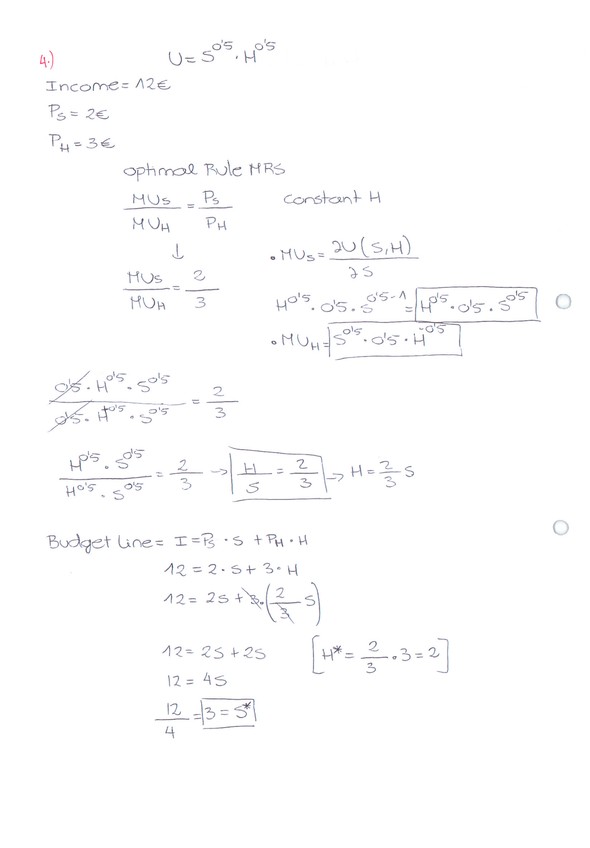 4.) U = S^0'5 · H^0'5
Income = 12€
Ps = 2€
PH = 3€
optimal Rule MRS
MUs/MUH = Ps/PH constant H
↓ • MUs = ∂U(S,H)/∂S
MUs/MUH = 2/3 H^0'5 · 0'5 · S^0'5-1 = H^0'5 · 0'5 · S^0'5
• MUH = S^0'5 · 0'5 · H^-0'5
0'5 · H^0'5 · S^0'5 / 0'5 · H^0'5 · S^0'5 = 2/3
H^0'5 · S^0'5 / H^0'5 · S^0'5 = 2/3 → H/S = 2/3 → H = 2/3 S
Budget Line = I = Ps · S + PH · H
12 = 2 · S + 3 · H
12 = 2S + 3 · (2/3 S)
12 = 2S + 2S [H* = 2/3 · 3 = 2]
12 = 4S
12/4 = 3 = S*